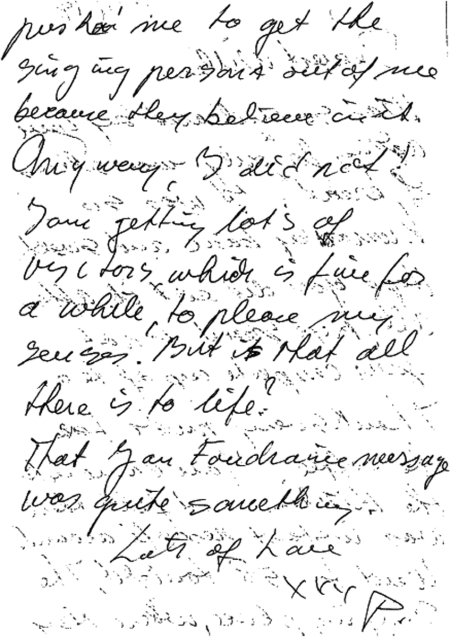 pushed me to get the
singing person out of me
because they believe in it.
Anyway, I did not!
I am getting lots of
visitors, which is fine for
a while, to please my
senses. But is that all
there is to life?
That Jan Foudraine message
was quite something.
Lots of Love
xxx P